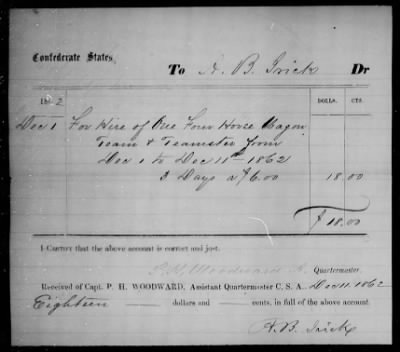 Confederate States
To A. B. Irick Dr
1862 DOLLS. CTS.
Dec 1 For Hire of One Four Horse Wagon
Team & Teamster from
Dec 1 to Dec 11th 1862
3 Days at $6.00 18.00
$18.00
I CERTIFY that the above account is correct and just.
P. H. Woodward A. Quartermaster.
Received of Capt. P. H. WOODWARD, Assistant Quartermaster C. S. A., Dec 11 1862
Eighteen dollars and cents, in full of the above account.
A. B. Irick